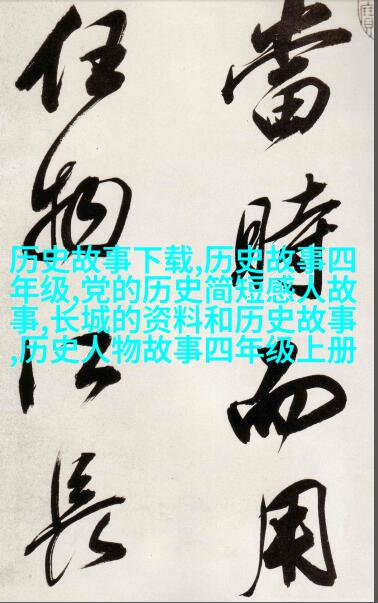 當時而用
任物長
历史故事下载,历史故事四
年级,党的历史简短感人故
事,长城的资料和历史故事
,历史人物故事四年级上册